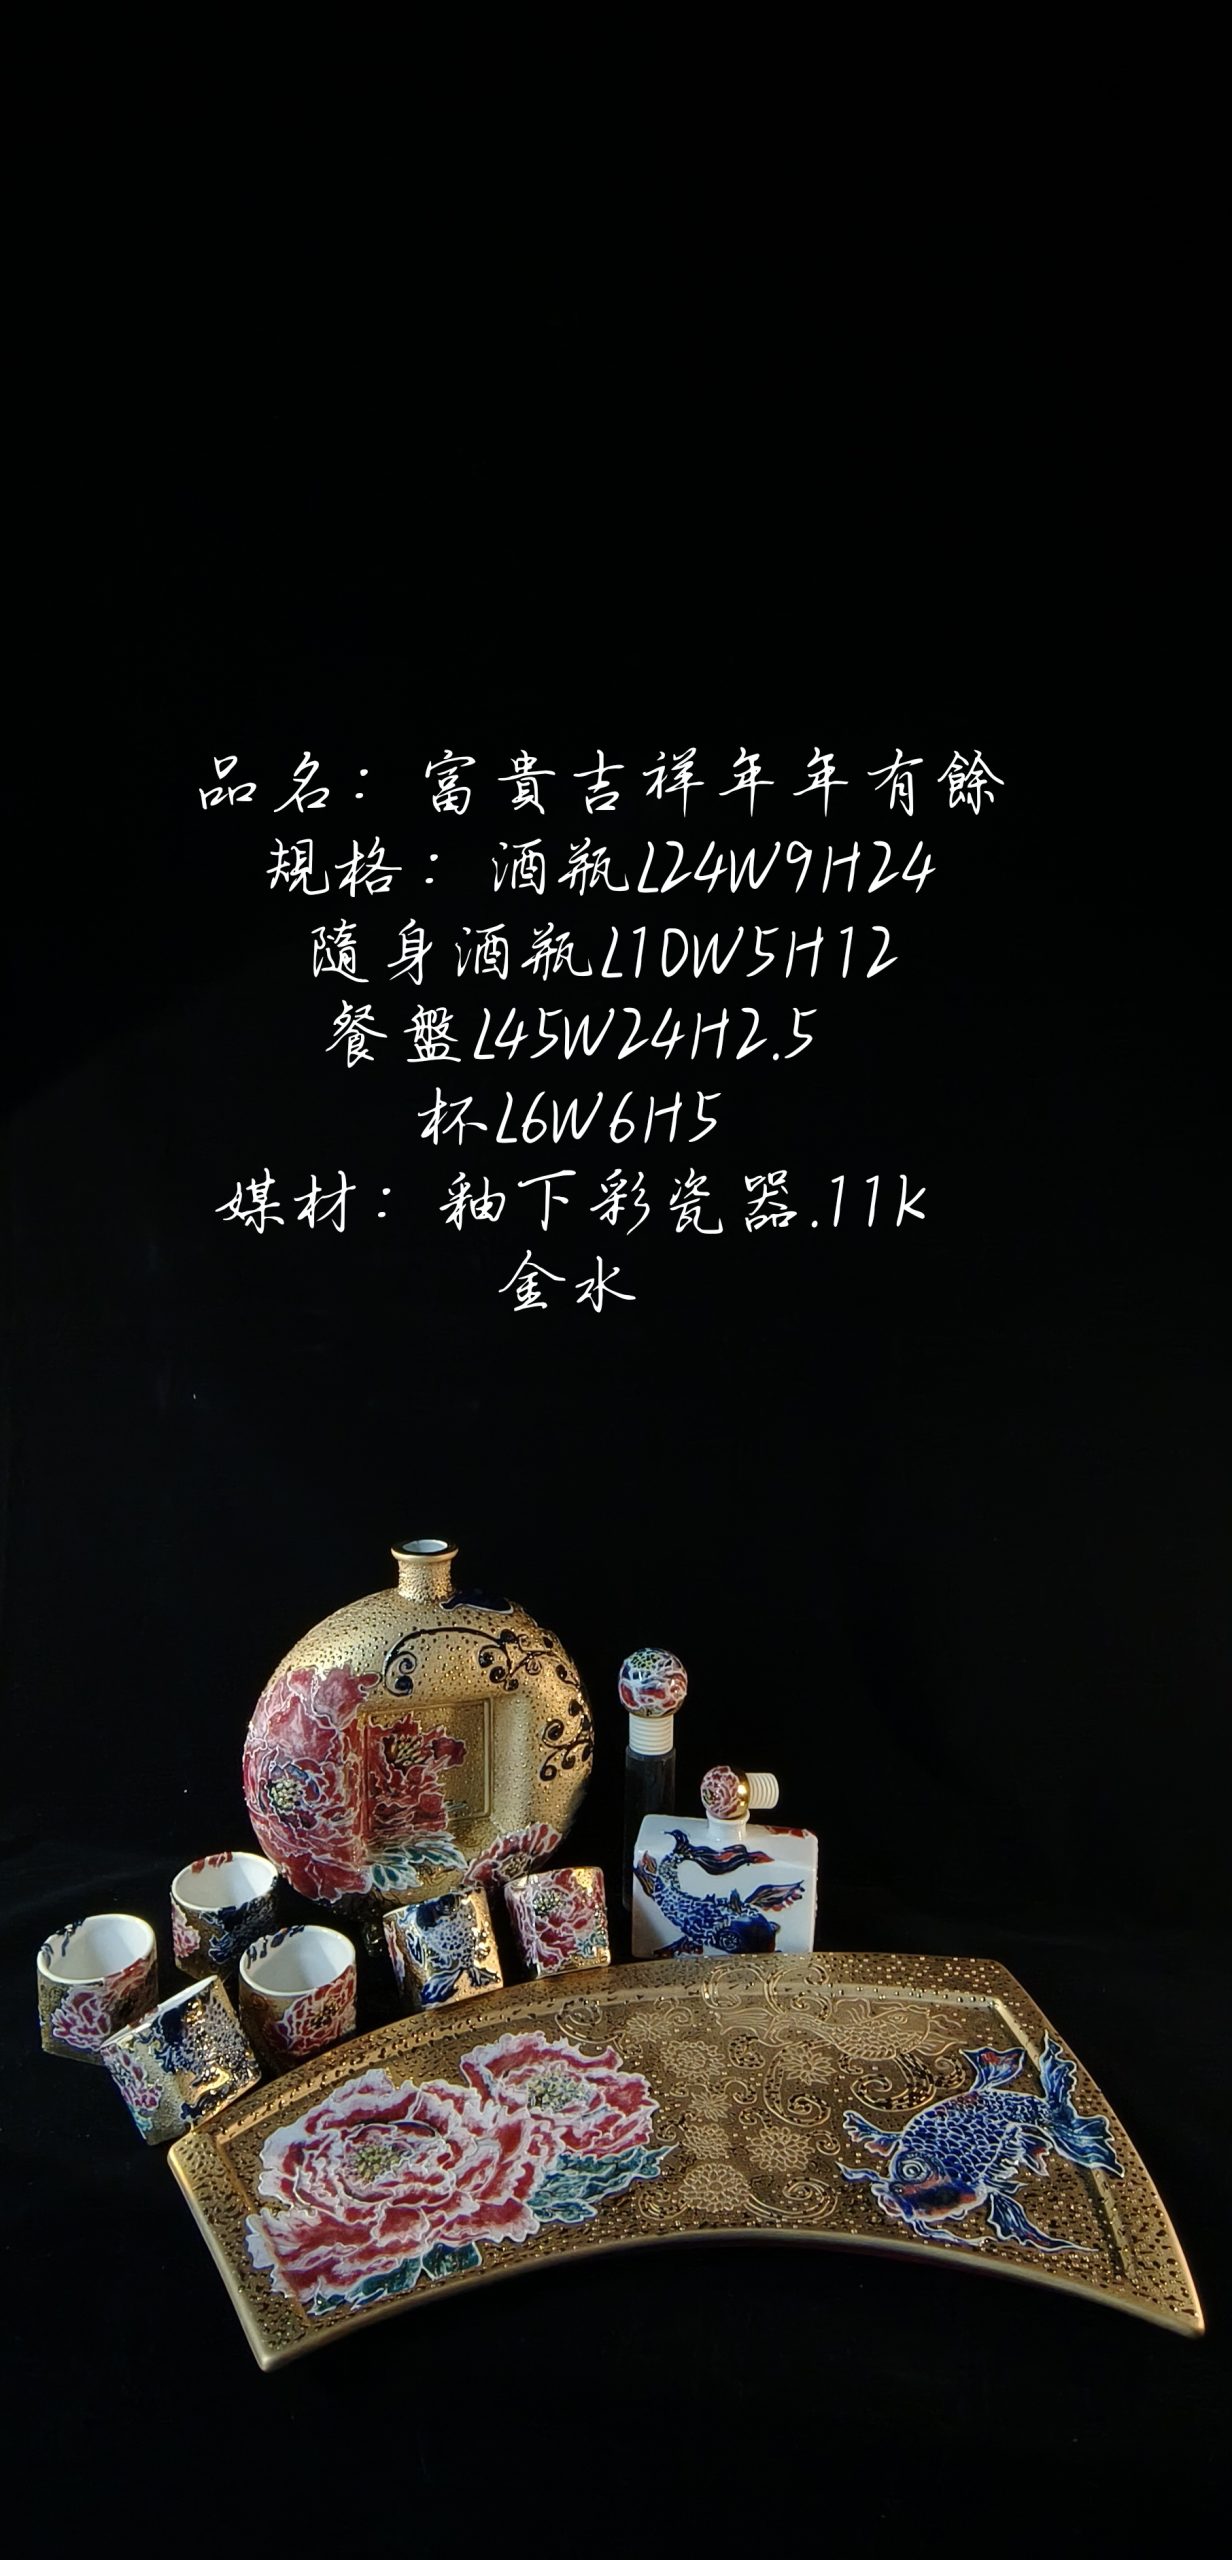 品名：富貴吉祥年年有餘
規格：酒瓶L24W9H24
隨身酒瓶L10W5H12
餐盤L45W24H2.5
杯L6W6H5
媒材：釉下彩瓷器.11k
金水